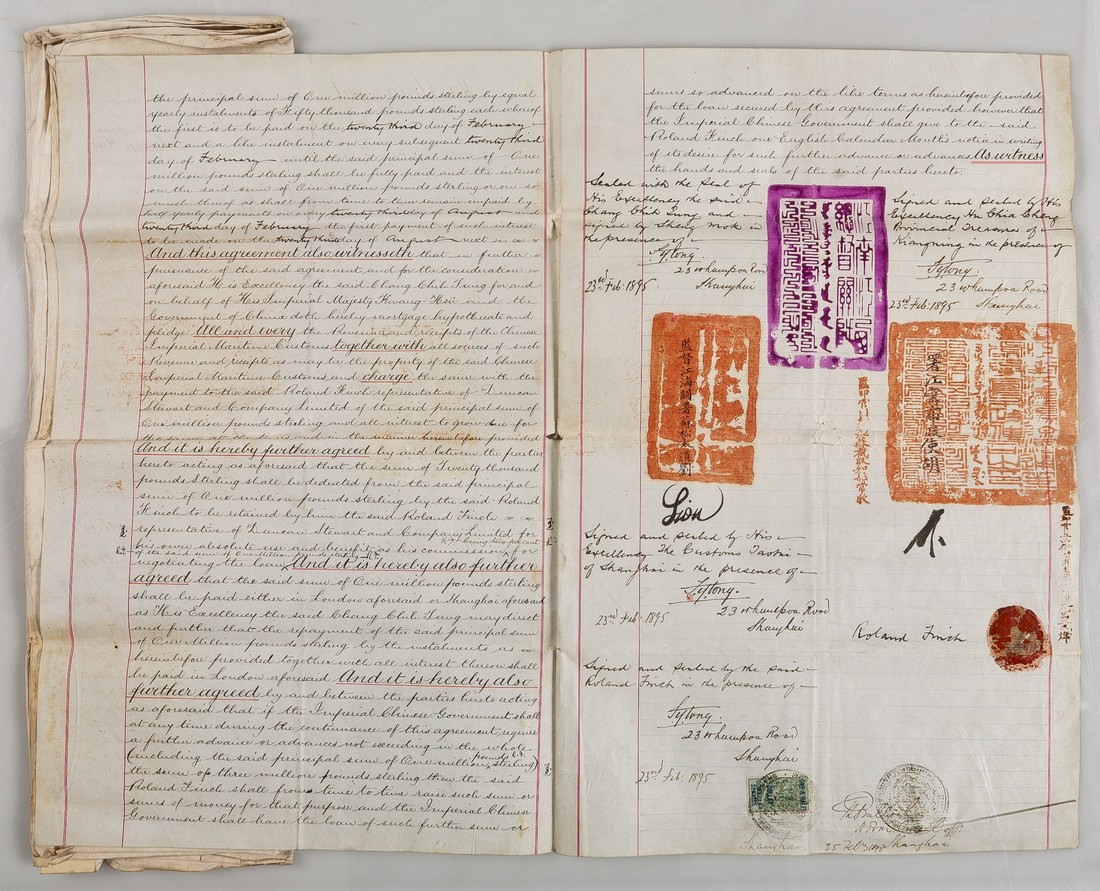 the principal sum of One million pounds sterling by equal
yearly instalments of Fifty thousand pounds sterling each whereof
the first is to be paid on the twenty third day of February
next and a like instalment on every subsequent twenty third
day of February until the said principal sum of One
million pounds sterling shall be fully paid and the interest
on the said sum of One million pounds sterling or on so
much thereof as shall from time to time remain unpaid by
half yearly payments on every twenty third day of August and
twenty third day of February the first payment of such interest
to be made on the twenty third day of August next
And this agreement also witnesseth that in further
pursuance of the said agreement and for the consideration
aforesaid His Excellency the said Chang Chih Tung for and
on behalf of His Imperial Majesty Kwang Hsü and the
Government of China doth hereby mortgage hypothecate and
pledge All and every the Revenue and receipts of the Chinese
Imperial Maritime Customs together with all sources of such
Revenue and receipts as may be the property of the said Chinese
Imperial Maritime Customs and charge the same with the
payment to the said Roland Finch representative of Duncan
Stewart and Company Limited of the said principal sum of
One million pounds sterling and all interest to grow due for
the same at the times and in the manner hereinbefore provided
And it is hereby further agreed by and between the parties
hereto acting as aforesaid that the sums of Twenty thousand
pounds Sterling shall be deducted from the said principal
sum of One million pounds sterling by the said Roland
Finch to be retained by him the said Roland Finch
representative of Duncan Stewart and Company Limited for
his own absolute use and benefit as his commission for
of the said sum of One Million pounds sterling R.F.
negotiating the loan And it is hereby also further
agreed that the said sum of One million pounds sterling
shall be paid either in London aforesaid or Shanghai aforesaid
as His Excellency the said Chang Chih Tung may direct
and further that the repayment of the said principal sum
of One Million pounds sterling by the instalments as
hereinbefore provided together with all interest thereon shall
be paid in London aforesaid And it is hereby also
further agreed by and between the parties hereto acting
as aforesaid that if the Imperial Chinese Government shall
at any time during the continuance of this agreement require
a further advance or advances not exceeding in the whole
pounds R.F.
(including the said principal sum of One million sterling)
the sum of three million pounds sterling then the said
Roland Finch shall from time to time raise such sum or
sums of money for that purpose and the Imperial Chinese
Government shall have the loan of such further sum or
sums so advanced on the like terms as hereinbefore provided
for the loan secured by this agreement provided however that
the Imperial Chinese Government shall give to the said
Roland Finch one English Calendar Month's notice in writing
of its desire for such further advance or advances As witness
the hands and seals of the said parties hereto
Sealed with the Seal of
His Excellency the said
Chang Chih Tung and
signed by Sheng in
the presence of
23 Whampoa Road
Shanghai
23rd Feb: 1895
Signed and sealed by His
Excellency Hu Chia Cheng
Provincial Treasurer of
Kiangning in the presence of
23 Whampoa Road
Shanghai
23rd Feb: 1895
江南江海
總督關防
監督江海關
署江寧布政使胡
Signed and sealed by His
Excellency The Customs Taotai
of Shanghai in the presence of
23 Whampoa Road
Shanghai
23rd Feb: 1895
Roland Finch
Signed and sealed by the said
Roland Finch in the presence of
23 Whampoa Road
Shanghai
23rd Feb: 1895
Shanghai
25 Feb 1895 Shanghai